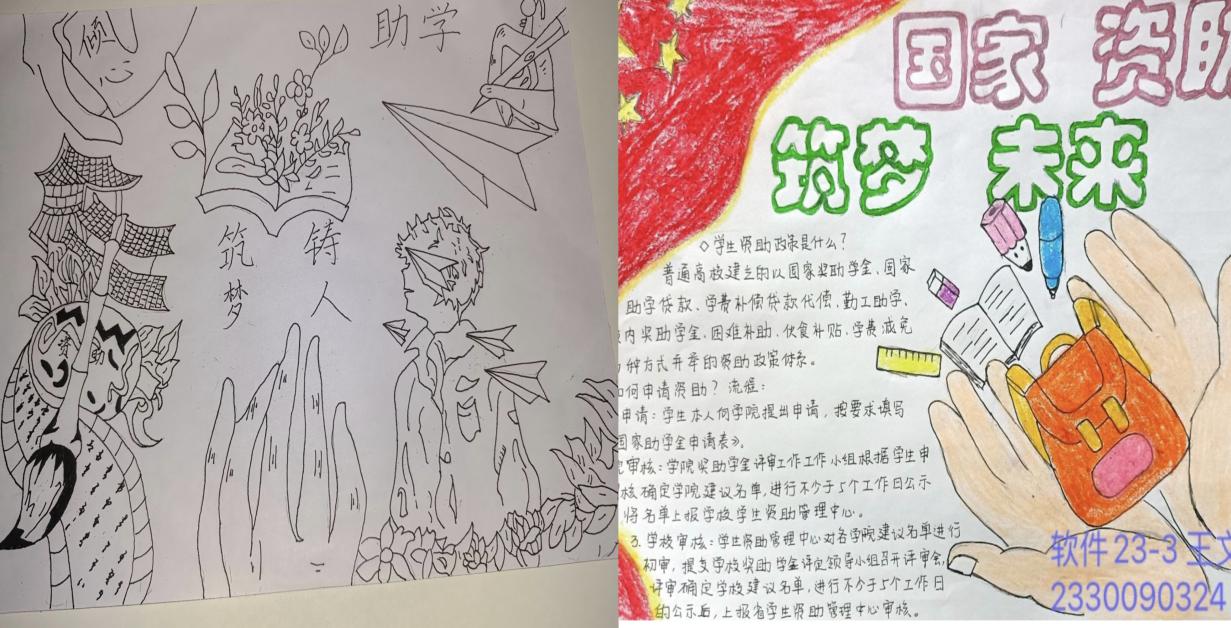 倾
助学
筑 铸
梦 人
资 助
国家 资助
筑梦 未来
◇学生资助政策是什么?
普通高校建立的以国家奖助学金、国家
助学贷款、学费补偿贷款代偿、勤工助学、
内奖助学金、困难补助、伙食补贴、学费减免
种方式并举的资助政策体系。
如何申请资助? 流程:
申请:学生本人向学院提出申请,按要求填写
国家助学金申请表》。
审核:学院奖助学金评审工作工作小组根据学生申
核确定学院建议名单,进行不少于5个工作日公示
将名单上报学校学生资助管理中心。
3.学校审核:学生资助管理中心对各学院建议名单进行
初审,提交学校奖助学金评定领导小组召开评审会,
评审确定学校建议名单,进行不少于5个工作日
的公示后,上报省学生资助管理中心审核。
软件23-3 王文
2330090324